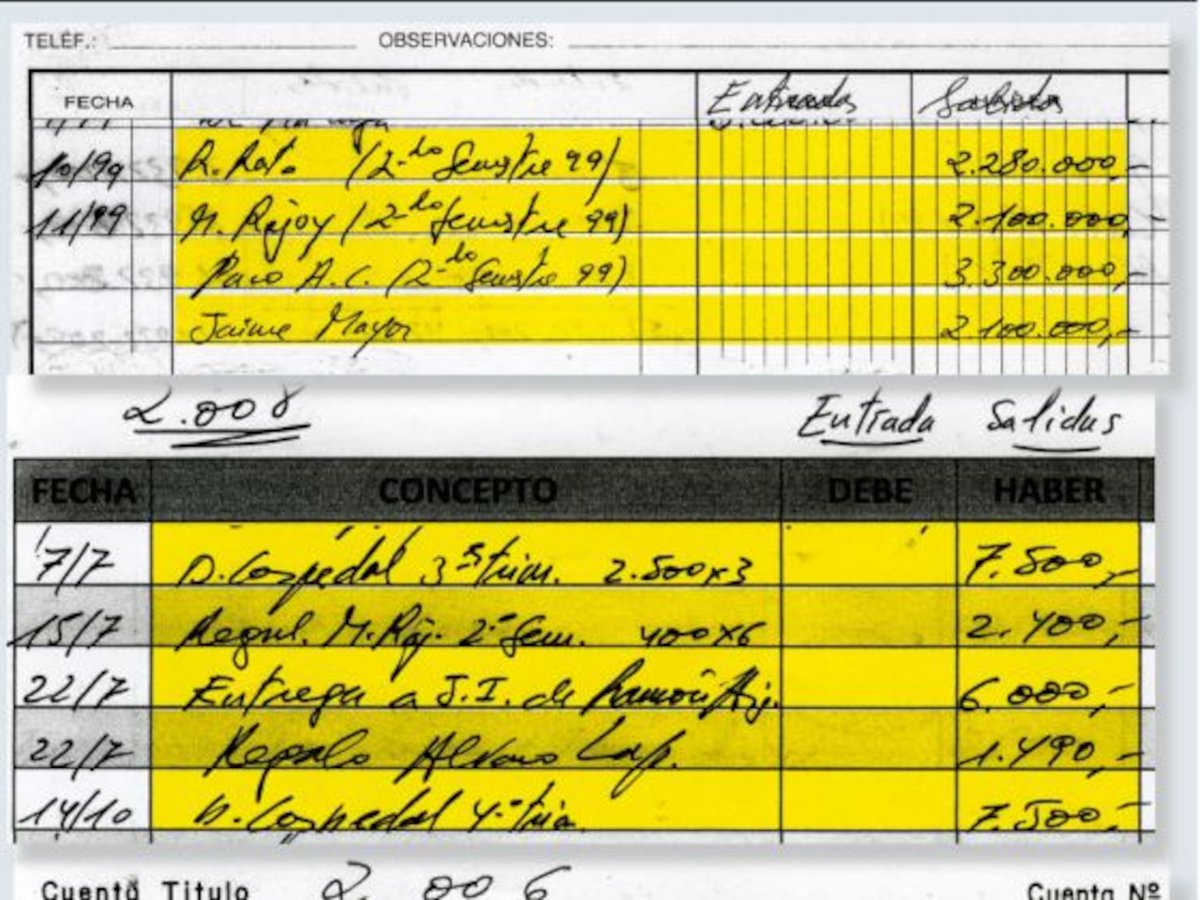 TELÉF.: OBSERVACIONES:
FECHA Entrada Salida
10/99 R. Rato (2-do Semestre 99) 2.280.000,-
11/99 M. Rajoy (2-do Semestre 99) 2.100.000,-
Paco A.C. (2-do Semestre 99) 3.300.000,-
Jaime Mayor 2.100.000,-
2.008 Entrada Salidas
FECHA CONCEPTO DEBE HABER
7/7 D. Cospedal 3º trim. 2.500x3 7.500,-
15/7 Regul. M. Raj. 2º Sem. 400x6 2.400,-
22/7 Entrega a J.I. de 6.000,-
22/7 Regalo Alvaro Lap. 1.490,-
14/10 D. Cospedal 4º trim. 7.500,-
Cuenta Titulo 2.006 Cuenta Nº